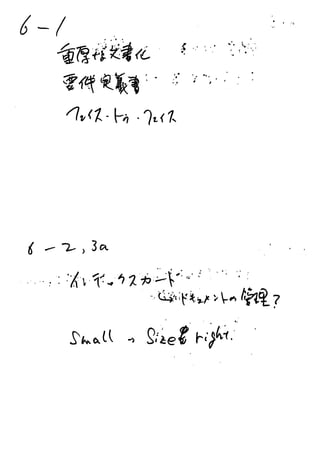 6-1
重厚な文書化
要件定義書
フェイス・トゥ・フェイス
6-2, 3a
インデックスカード
ドキュメントの管理?
Small → Sizeも right.